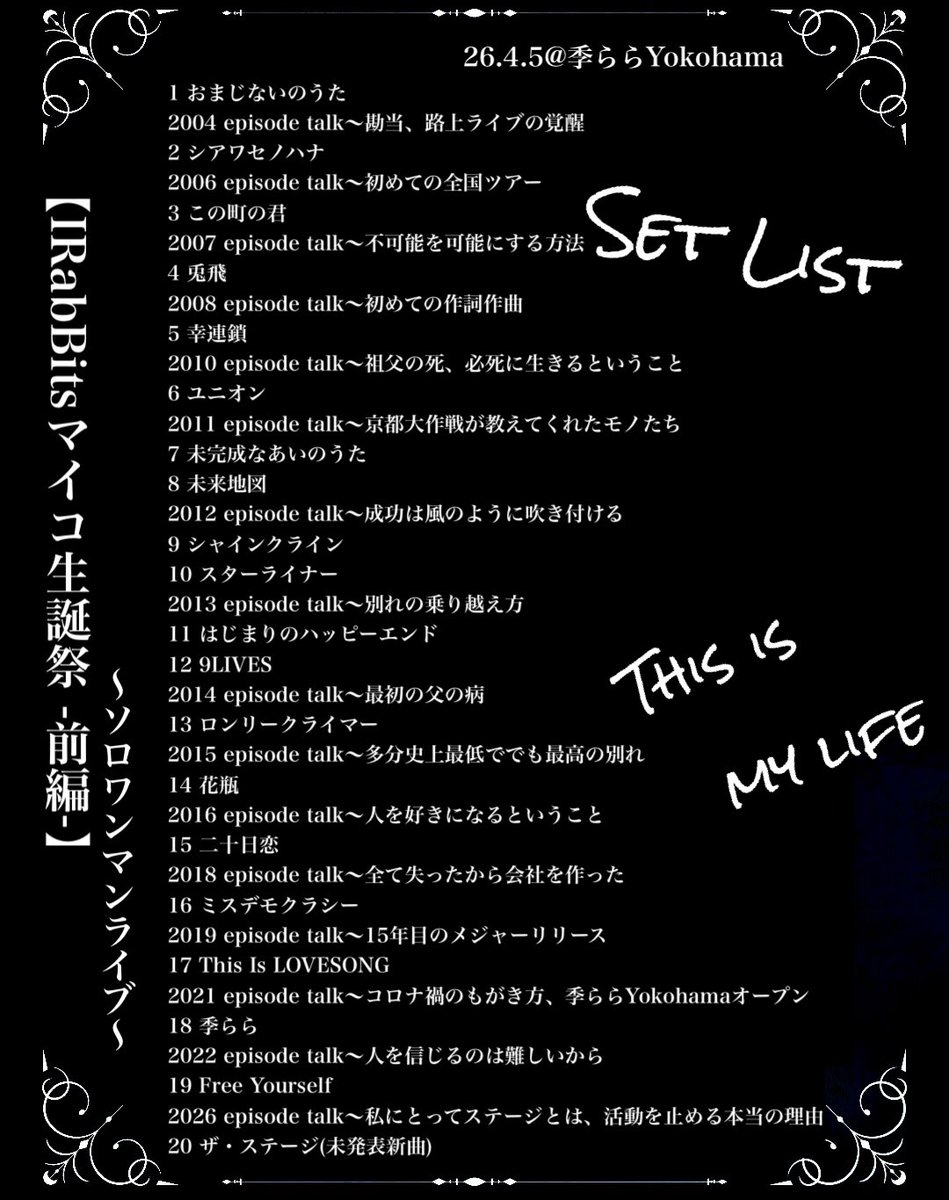 26.4.5@季ららYokohama
【IRabBitsマイコ生誕祭 -前編-】
〜ソロワンマンライブ〜
SET LIST
1 おまじないのうた
2004 episode talk〜勘当、路上ライブの覚醒
2 シアワセノハナ
2006 episode talk〜初めての全国ツアー
3 この町の君
2007 episode talk〜不可能を可能にする方法
4 兎飛
2008 episode talk〜初めての作詞作曲
5 幸連鎖
2010 episode talk〜祖父の死、必死に生きるということ
6 ユニオン
2011 episode talk〜京都大作戦が教えてくれたモノたち
7 未完成なあいのうた
8 未来地図
2012 episode talk〜成功は風のように吹き付ける
9 シャインクライン
10 スターライナー
2013 episode talk〜別れの乗り越え方
11 はじまりのハッピーエンド
12 9LIVES
2014 episode talk〜最初の父の病
13 ロンリークライマー
2015 episode talk〜多分史上最低ででも最高の別れ
14 花瓶
2016 episode talk〜人を好きになるということ
15 二十日恋
2018 episode talk〜全て失ったから会社を作った
16 ミスデモクラシー
2019 episode talk〜15年目のメジャーリリース
17 This Is LOVESONG
2021 episode talk〜コロナ禍のもがき方、季ららYokohamaオープン
18 季らら
2022 episode talk〜人を信じるのは難しいから
19 Free Yourself
2026 episode talk〜私にとってステージとは、活動を止める本当の理由
20 ザ・ステージ(未発表新曲)
THIS IS
MY LIFE